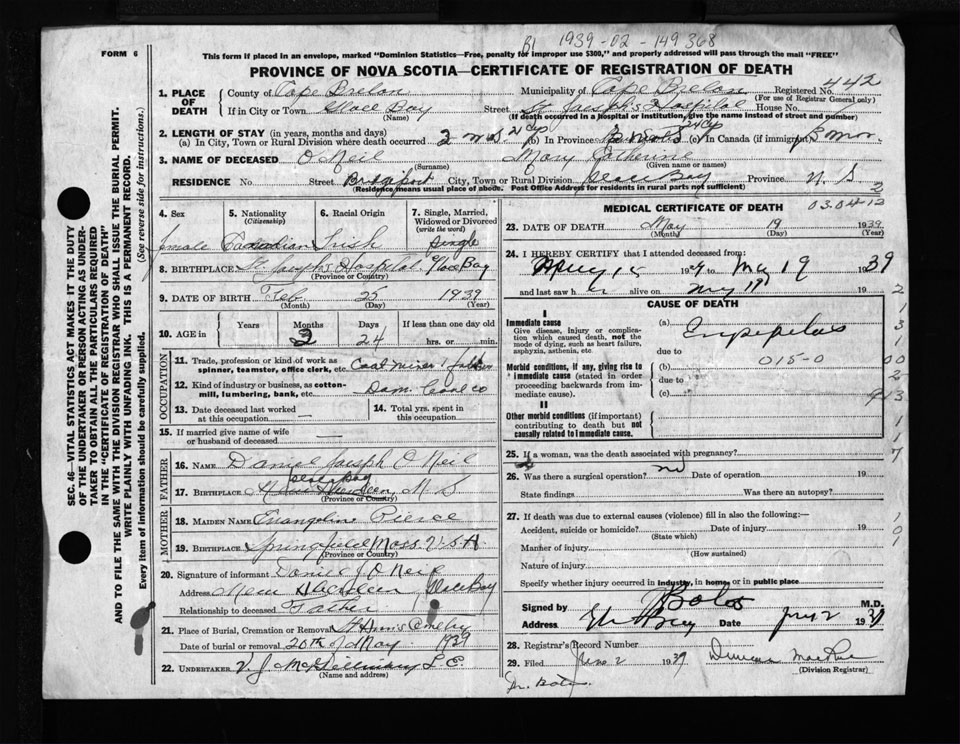 B1 1939-02-149368
FORM 6
This form if placed in an envelope, marked "Dominion Statistics—Free, penalty for improper use $300," and properly addressed will pass through the mail "FREE"
PROVINCE OF NOVA SCOTIA—CERTIFICATE OF REGISTRATION OF DEATH
1. PLACE OF DEATH
County of Cape Breton Municipality of Cape Breton Registered No. 442
(For use of Registrar General only)
If in City or Town Glace Bay Street St Joseph's Hospital House No.
(Name) (If death occurred in a hospital or institution, give the name instead of street and number)
2. LENGTH OF STAY (in years, months and days)
(a) In City, Town or Rural Division where death occurred 2 mos 24 dys (b) In Province (c) In Canada (if immigrant)
3. NAME OF DECEASED O'Neil Mary Catherine
(Surname) (Given name or names)
RESIDENCE No. Street Bridgeport City, Town or Rural Division Glace Bay Province N. S
(Residence means usual place of abode. Post Office Address for residents in rural parts not sufficient)
4. Sex female
5. Nationality (Citizenship) Canadian
6. Racial Origin Irish
7. Single, Married, Widowed or Divorced (write the word) Single
8. BIRTHPLACE St. Joseph's Hospital, Glace Bay
(Province or Country)
9. DATE OF BIRTH Feb 25 1939
(Month) (Day) (Year)
10. AGE in Years Months Days If less than one day old
2 24 hrs. or min.
OCCUPATION
11. Trade, profession or kind of work as spinner, teamster, office clerk, etc. Coal miner father
12. Kind of industry or business, as cotton-mill, lumbering, bank, etc. Dom. Coal Co
13. Date deceased last worked at this occupation
14. Total yrs. spent in this occupation
15. If married give name of wife or husband of deceased
FATHER
16. NAME Daniel Joseph O'Neil
17. BIRTHPLACE Glace Bay New Aberdeen, N. S
(Province or Country)
MOTHER
18. MAIDEN NAME Evangeline Pierce
19. BIRTHPLACE Springfield Mass U.S.A.
(Province or Country)
20. Signature of informant Daniel J. O'Neil
Address New Aberdeen Glace Bay
Relationship to deceased Father
21. Place of Burial, Cremation or Removal St Ann's Cemetery
Date of burial or removal 20th of May 1939
22. UNDERTAKER V. J.
(Name and address)
MEDICAL CERTIFICATE OF DEATH
23. DATE OF DEATH May 19 1939
(Month) (Day) (Year)
24. I HEREBY CERTIFY that I attended deceased from
to May 19 1939
and last saw her alive on May 19 19
CAUSE OF DEATH
I
Immediate cause
Give disease, injury or complication which caused death, not the mode of dying, such as heart failure, asphyxia, asthenia, etc.
(a) Erysipelas
due to
Morbid conditions, if any, giving rise to immediate cause (stated in order proceeding backwards from immediate cause).
(b) 015-0
due to
(c)
II
Other morbid conditions (important) contributing to death but not causally related to immediate cause.
25. If a woman, was the death associated with pregnancy?
26. Was there a surgical operation? no Date of operation 19
State findings Was there an autopsy?
27. If death was due to external causes (violence) fill in also the following:—
Accident, suicide or homicide? Date of injury 19
(State which)
Manner of injury
(How sustained)
Nature of injury
Specify whether injury occurred in industry, in home, or in public place
Signed by M.D.
Address Date 1939
28. Registrar's Record Number
29. Filed June 2 1939 Duncan MacRae
(Division Registrar)
SEC. 46—VITAL STATISTICS ACT MAKES IT THE DUTY OF THE UNDERTAKER OR PERSON ACTING AS UNDERTAKER TO OBTAIN ALL THE PARTICULARS REQUIRED IN THE "CERTIFICATE OF REGISTRATION OF DEATH" AND TO FILE THE SAME WITH THE DIVISION REGISTRAR WHO SHALL ISSUE THE BURIAL PERMIT.
WRITE PLAINLY WITH UNFADING INK. THIS IS A PERMANENT RECORD.
Every item of information should be carefully supplied. (See reverse side for instructions.)